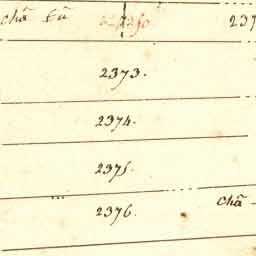 chã
237
2373.
2374.
2375.
2376.
chã